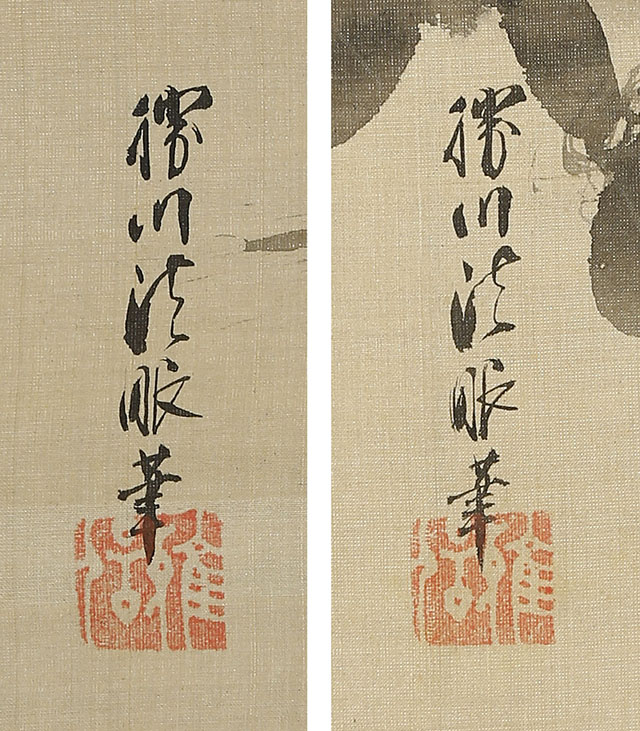 勝川法眼筆
勝川法眼筆